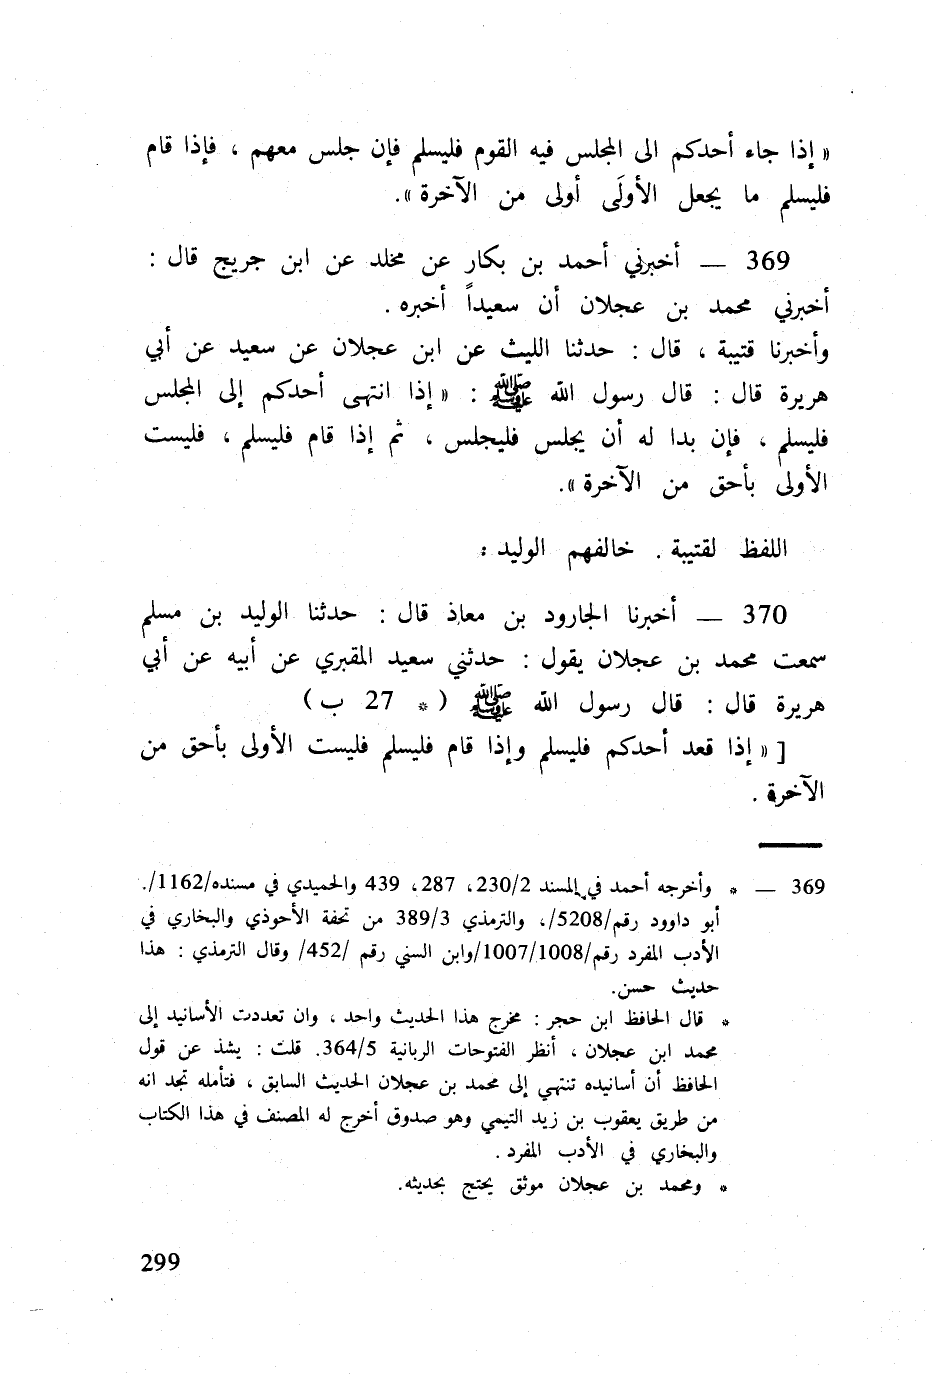 « إذا جاء أحدكم الى المجلس فيه القوم فليسلم فإن جلس معهم ، فإذا قام
فليسلم ما يجعل الأولَى أولى من الآخرة ».
369 — أخبرني أحمد بن بكار عن مخلد عن ابن جريج قال :
أخبرني محمد بن عجلان أن سعيداً أخبره .
وأخبرنا قتيبة ، قال : حدثنا الليث عن ابن عجلان عن سعيد عن أبي
هريرة قال : قال رسول الله ﷺ : « إذا انتهى أحدكم إلى المجلس
فليسلم ، فإن بدا له أن يجلس فليجلس ، ثم إذا قام فليسلم ، فليست
الأولى بأحق من الآخرة ».
اللفظ لقتيبة . خالفهم الوليد :
370 — أخبرنا الجارود بن معاذ قال : حدثنا الوليد بن مسلم
سمعت محمد بن عجلان يقول : حدثني سعيد المقبري عن أبيه عن أبي
هريرة قال : قال رسول الله ﷺ ( * 27 ب )
[ « إذا قعد أحدكم فليسلم وإذا قام فليسلم فليست الأولى بأحق من
الآخرة .
369 — * وأخرجه أحمد في المسند 230/2، 287، 439 والحميدي في مسنده/1162/.
أبو داوود رقم/5208/، والترمذي 389/3 من تحفة الأحوذي والبخاري في
الأدب المفرد رقم/1007/1008/وابن السني رقم /452/ وقال الترمذي : هذا
حديث حسن.
* قال الحافظ ابن حجر : مخرج هذا الحديث واحد ، وان تعددت الأسانيد إلى
محمد ابن عجلان ، أنظر الفتوحات الربانية 364/5. قلت : يشذ عن قول
الحافظ أن أسانيده تنتهي إلى محمد بن عجلان الحديث السابق ، فتأمله تجد انه
من طريق يعقوب بن زيد التيمي وهو صدوق أخرج له المصنف في هذا الكتاب
والبخاري في الأدب المفرد .
* ومحمد بن عجلان موثق يحتج بحديثه.
299